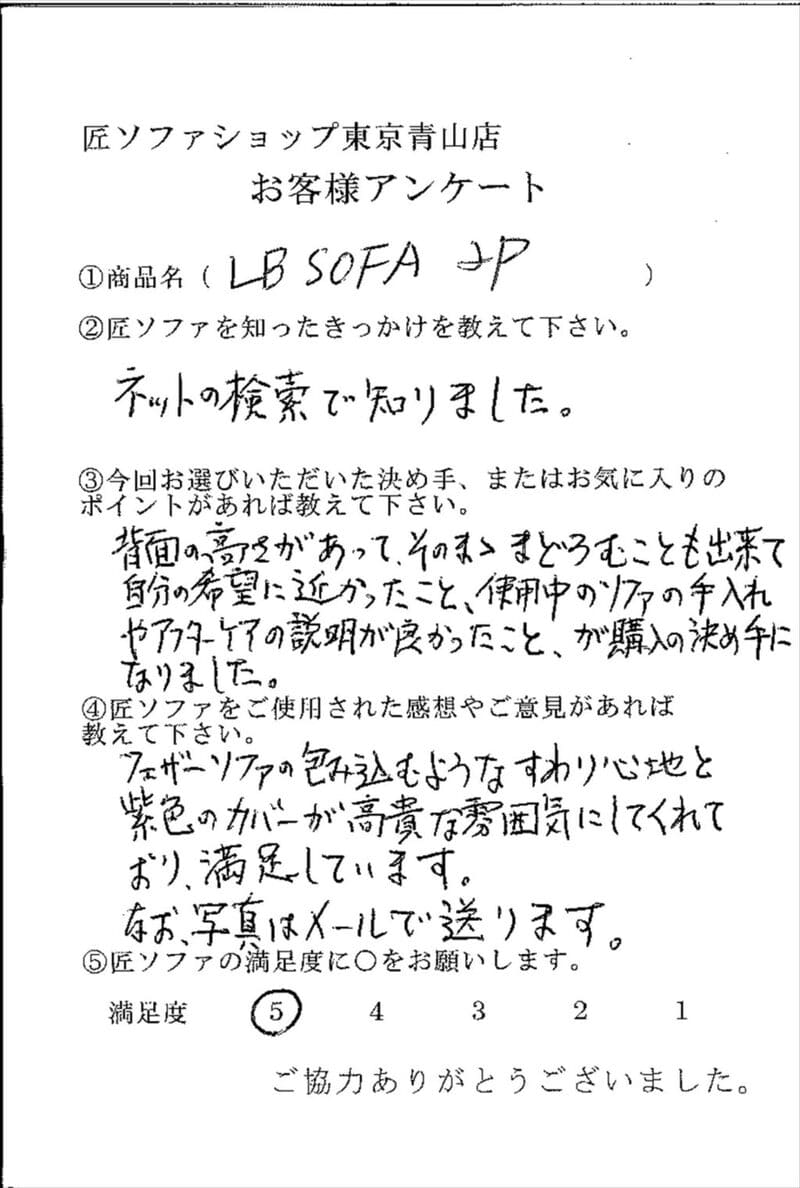 匠ソファショップ東京青山店
お客様アンケート
①商品名（ LB SOFA 2P ）
②匠ソファを知ったきっかけを教えて下さい。
ネットの検索で知りました。
③今回お選びいただいた決め手、またはお気に入りの
ポイントがあれば教えて下さい。
背面の高さがあって、そのまゝまどろむことも出来て
自分の希望に近かったこと、使用中のソファの手入れ
やアフターケアの説明が良かったこと、が購入の決め手に
なりました。
④匠ソファをご使用された感想やご意見があれば
教えて下さい。
フェザーソファの包み込むようなすわり心地と
紫色のカバーが高貴な雰囲気にしてくれて
おり、満足しています。
なお、写真はメールで送ります。
⑤匠ソファの満足度に〇をお願いします。
満足度 5 4 3 2 1
ご協力ありがとうございました。